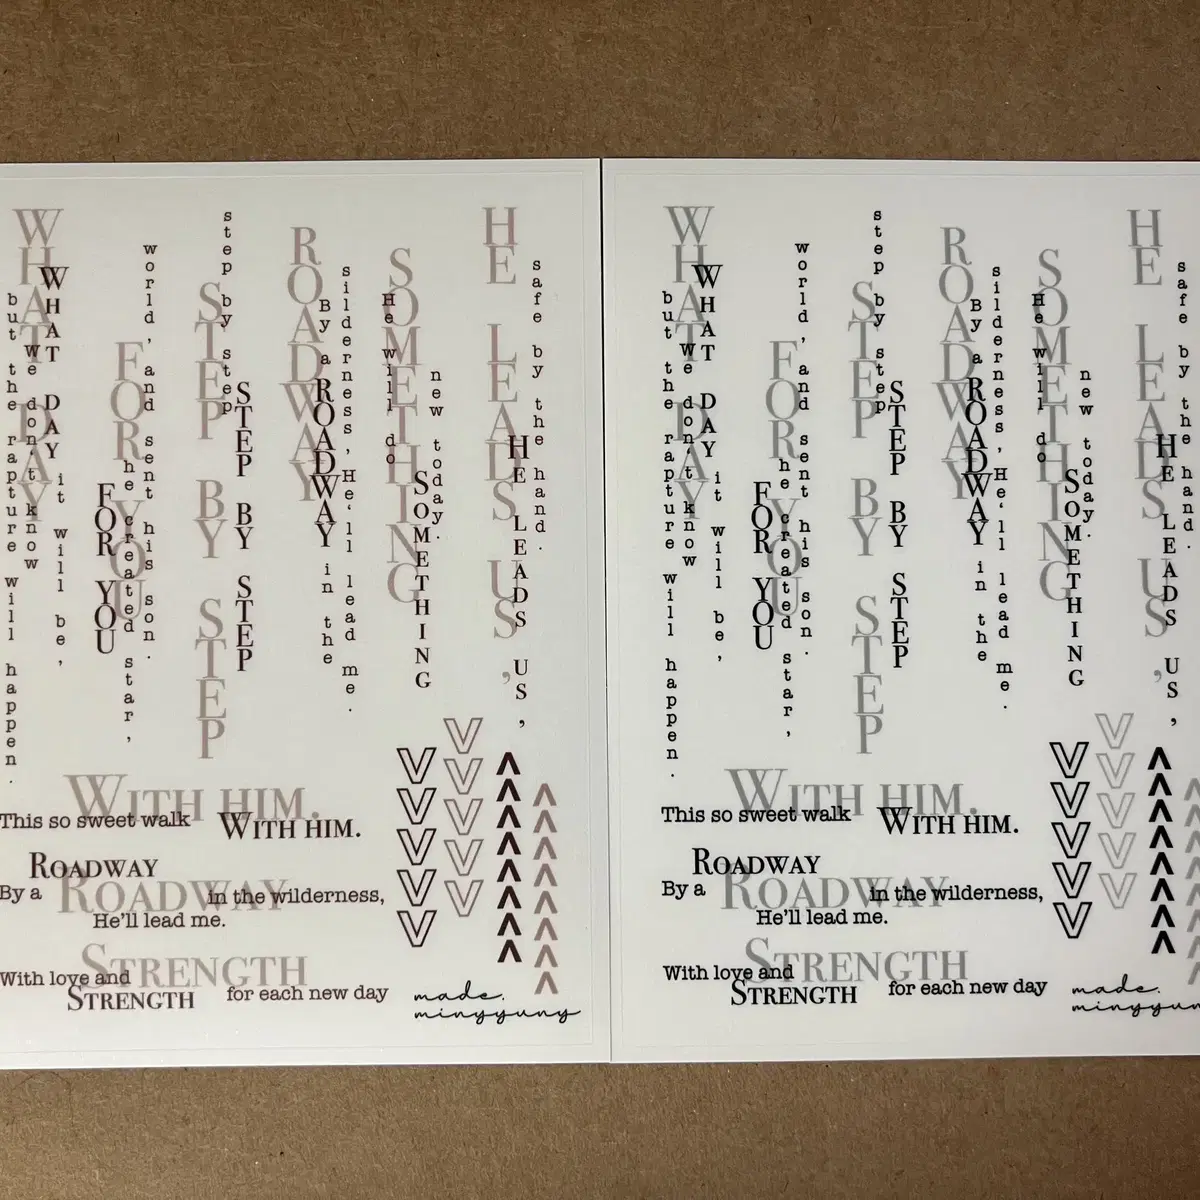 but the rapture will happen.
WHAT DAY
we don't know
WHAT DAY
it will be,
FOR YOU
FOR YOU
he created star,
world, and sent his son.
STEP BY STEP
step by step
STEP BY STEP
ROADWAY
By a ROADWAY in the
silderness, He'll lead me.
He will do
SOMETHING
SOMETHING
new today.
HE LEADS US,
HE LEADS US,
safe by the hand.
WITH HIM.
This so sweet walk WITH HIM.
ROADWAY
By a ROADWAY in the wilderness,
He'll lead me.
STRENGTH
With love and
STRENGTH for each new day
made.
mingyuny
but the rapture will happen.
WHAT DAY
we don't know
WHAT DAY
it will be,
FOR YOU
FOR YOU
he created star,
world, and sent his son.
STEP BY STEP
step by step
STEP BY STEP
ROADWAY
By a ROADWAY in the
silderness, He'll lead me.
He will do
SOMETHING
SOMETHING
new today.
HE LEADS US,
HE LEADS US,
safe by the hand.
WITH HIM.
This so sweet walk WITH HIM.
ROADWAY
By a ROADWAY in the wilderness,
He'll lead me.
STRENGTH
With love and
STRENGTH for each new day
made.